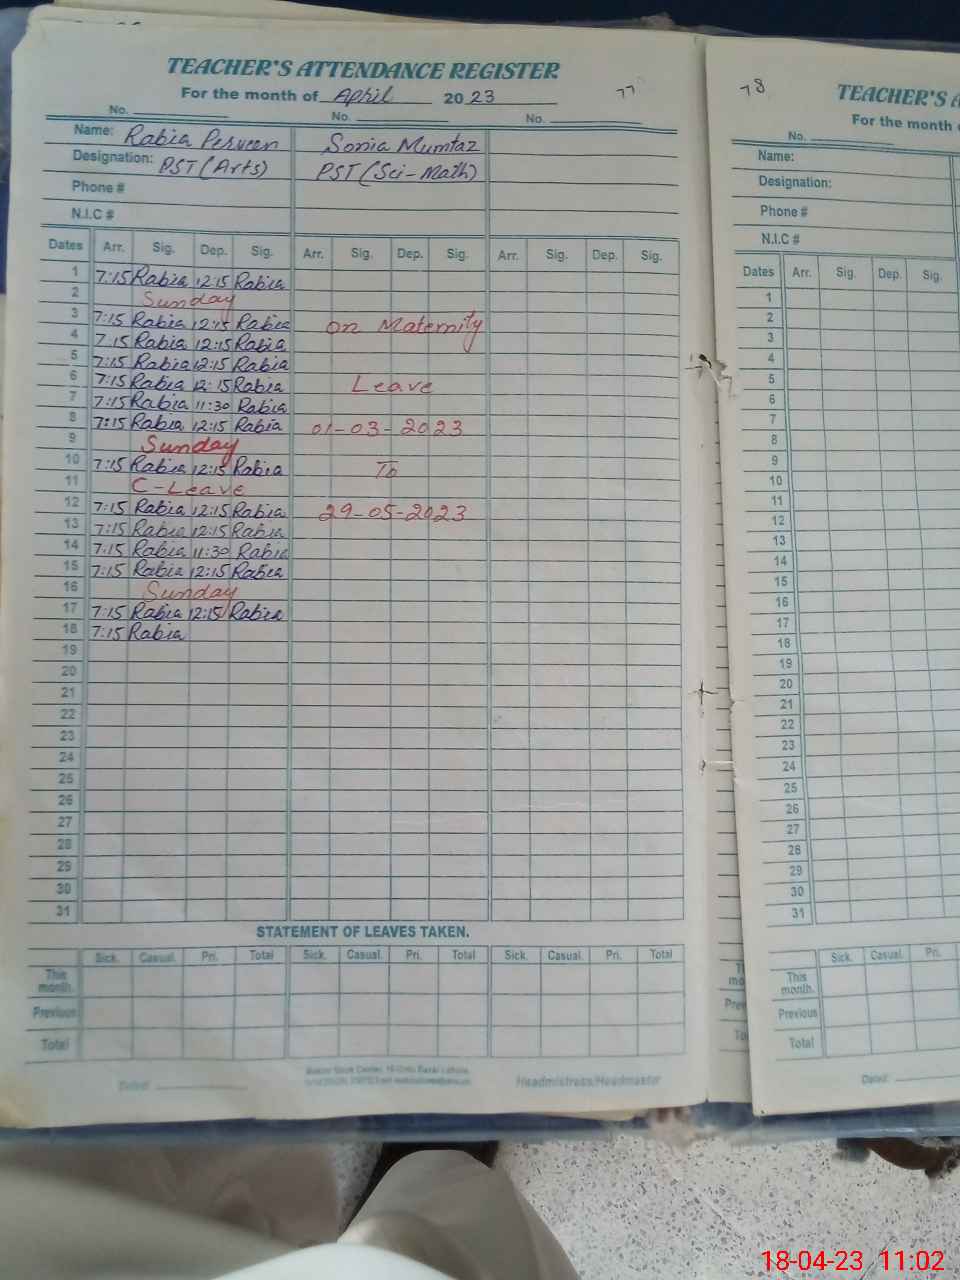 TEACHER'S ATTENDANCE REGISTER
For the month of April 2023
77
No. No. No.
Name: Rabia Perveen Sonia Mumtaz
Designation: PST (Arts) PST (Sci-Math)
Phone #
N.I.C #
Dates Arr. Sig. Dep. Sig. Arr. Sig. Dep. Sig. Arr. Sig. Dep. Sig.
1 7:15 Rabia 12:15 Rabia
2 Sunday
3 7:15 Rabia 12:15 Rabia on Maternity
4 7:15 Rabia 12:15 Rabia
5 7:15 Rabia 12:15 Rabia
6 7:15 Rabia 12:15 Rabia Leave
7 7:15 Rabia 11:30 Rabia
8 7:15 Rabia 12:15 Rabia 01-03-2023
9 Sunday
10 7:15 Rabia 12:15 Rabia To
11 C-Leave
12 7:15 Rabia 12:15 Rabia 29-05-2023
13 7:15 Rabia 12:15 Rabia
14 7:15 Rabia 11:30 Rabia
15 7:15 Rabia 12:15 Rabia
16 Sunday
17 7:15 Rabia 12:15 Rabia
18 7:15 Rabia
19
20
21
22
23
24
25
26
27
28
29
30
31
STATEMENT OF LEAVES TAKEN.
Sick. Casual. Pri. Total Sick. Casual. Pri. Total Sick. Casual. Pri. Total
This month.
Previous
Total
Dated:
Headmistress/Headmaster
78
TEACHER'S A
For the month
No.
Name:
Designation:
Phone #
N.I.C #
Dates Arr. Sig. Dep. Sig.
1
2
3
4
5
6
7
8
9
10
11
12
13
14
15
16
17
18
19
20
21
22
23
24
25
26
27
28
29
30
31
Sick. Casual. Pri.
This month.
Previous
Total
Dated:
18-04-23 11:02